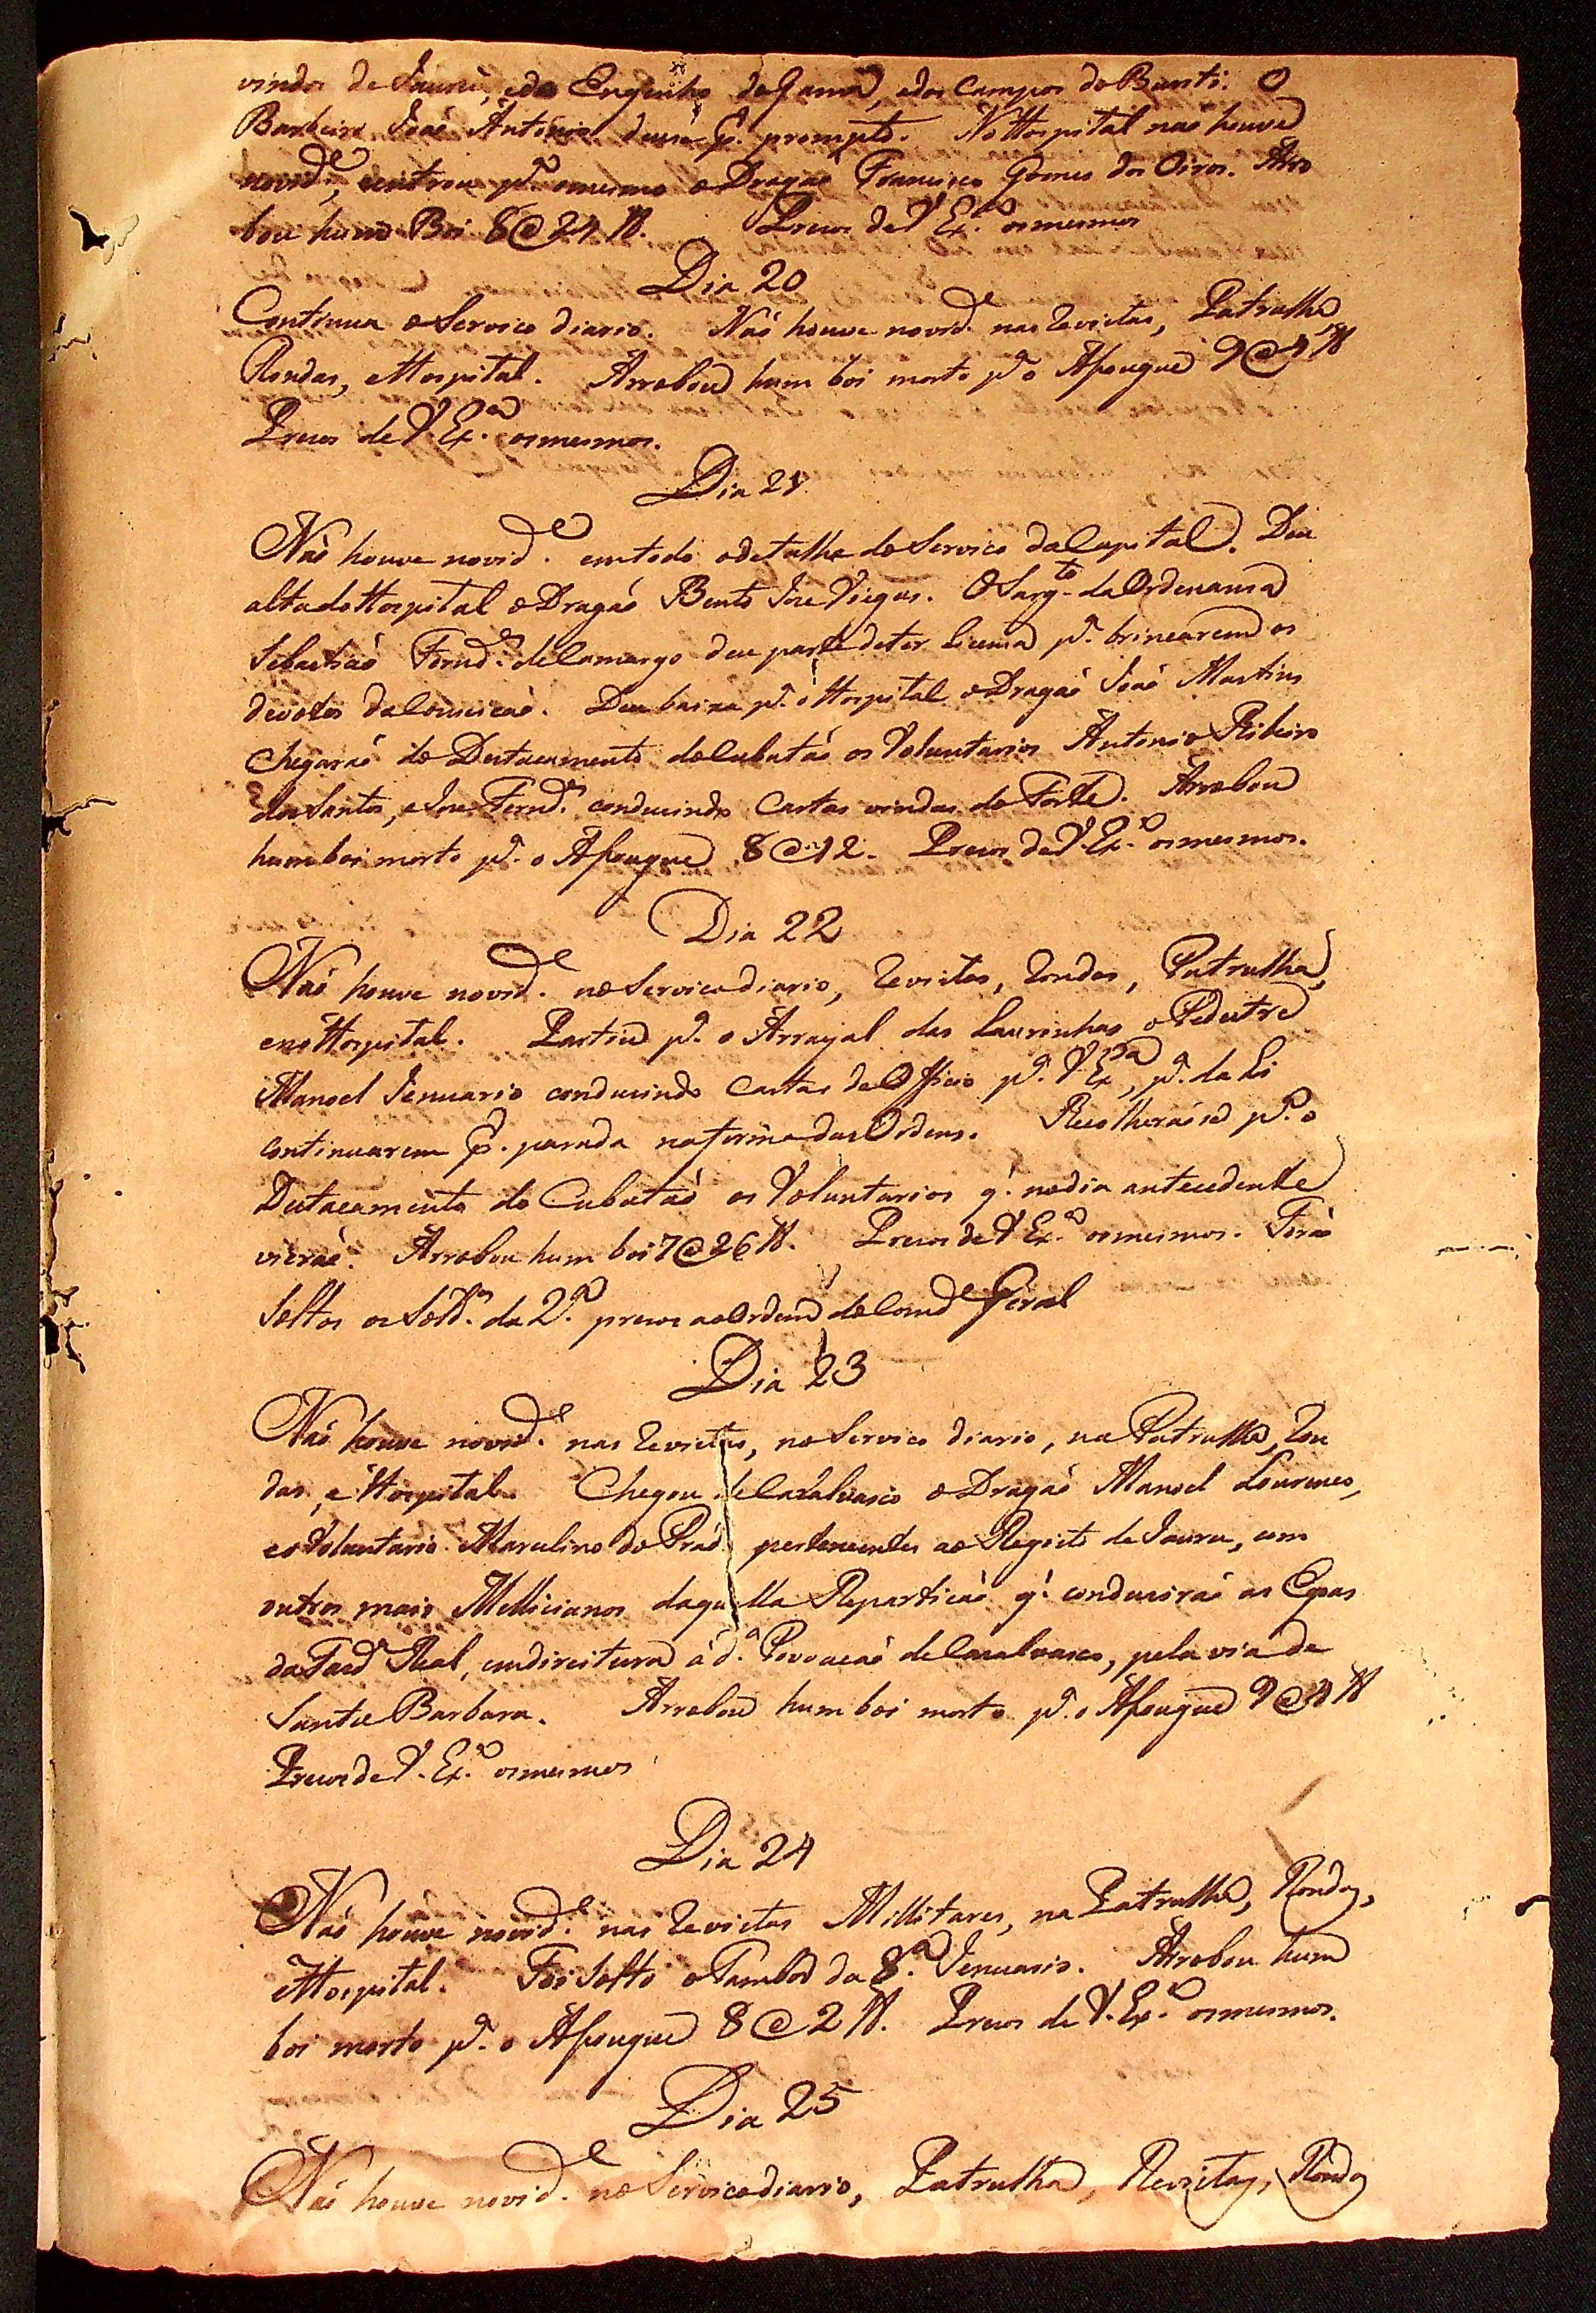 vindos de Jaurú, e do Engenho do Gama, e dos Campos do Buriti. O
Barbeiro Joaõ Antonio deu-se p. prompto. No Hospital naõ houve
novid.e, entrou p.a o mesmo o Dragaõ Francisco Gomes dos Oiros. Arro
bou hum Boi 8@24 lb. Prezos de V Ex.a os mesmos
Dia 20
Continua o Servico diario. Naõ houve novid.e nas revistas, Patrulha,
Rondas, e Hospital. Arrobou hum boi morto p.a o Asougue 9@4 lb
Prezos de V. Ex.a os mesmos.
Dia 21
Naõ houve novid.e em todo o detalhe do Servico da Capital. Deu
alta do Hospital o Dragaõ Bento Jose Viegas. O Sarg.to da Ordenansa
Sebastiaõ Fernd.s de Camargo deu parte de ter licensa p.a brincarem os
devotos da Conceicaõ. Deu baixa p.a o Hospital o Dragaõ Joaõ Martins
Chegaraõ do Destacamento do Cubataõ os Voluntarios Antonio Ribeiro
dos Santos, e Jose Fernd.s conducindo Cartas vindas do Forte. Arrobou
hum boi morto p.a o Asougue 8@12. Prezos de V. Ex.a os mesmos.
Dia 22
Naõ houve novid.e no Servico diario, revistas, rondas, Patrulha,
e no Hospital. Partiu p.a o Arrayal das Lavrinhas o Pedestre
Manoel Jenuario conducindo Cartas de Officio p.a V Ex.a, p.a da li
continuarem p. parada na forma das Ordens. Recolheraõ se p.a o
Destacamento do Cubataõ os Voluntarios q. no dia antecedente
vieraõ. Arrobou hum boi 7@26 lb. Prezos de V Ex.a os mesmos. Foraõ
Soltos os Sold.os da 2.a prezos a Ordem do Comd.e Geral
Dia 23
Naõ houve novid.e nas revistas, no Servico diario, na Patrulha, ron
das, e Hospital. Chegou de Casalvasco o Dragaõ Manoel Lourenco,
e o Voluntario Marcelino do Prado pertencentes ao Registo de Jauru, com
outros mais Millicianos daquella Reparticaõ q. conduciraõ as Egoas
da Fazd.a Real, em direitura á d.a Povoacaõ de Casalvasco, pela via de
Santa Barbara. Arrobou hum boi morto p.a o Asougue 9@4 lb
Prezos de V. Ex.a os mesmos
Dia 24
Naõ houve novid.e nas revistas Millitares, na Patrulha, Rondas,
e Hospital. Foi Solto o Tambor da 8.a Jenuario. Arrobou hum
boi morto p.a o Asougue 8@2 lb. Prezos de V. Ex.a os mesmos.
Dia 25
Naõ houve novid.e no Servico diario, Patrulha, Revistas, Rondas